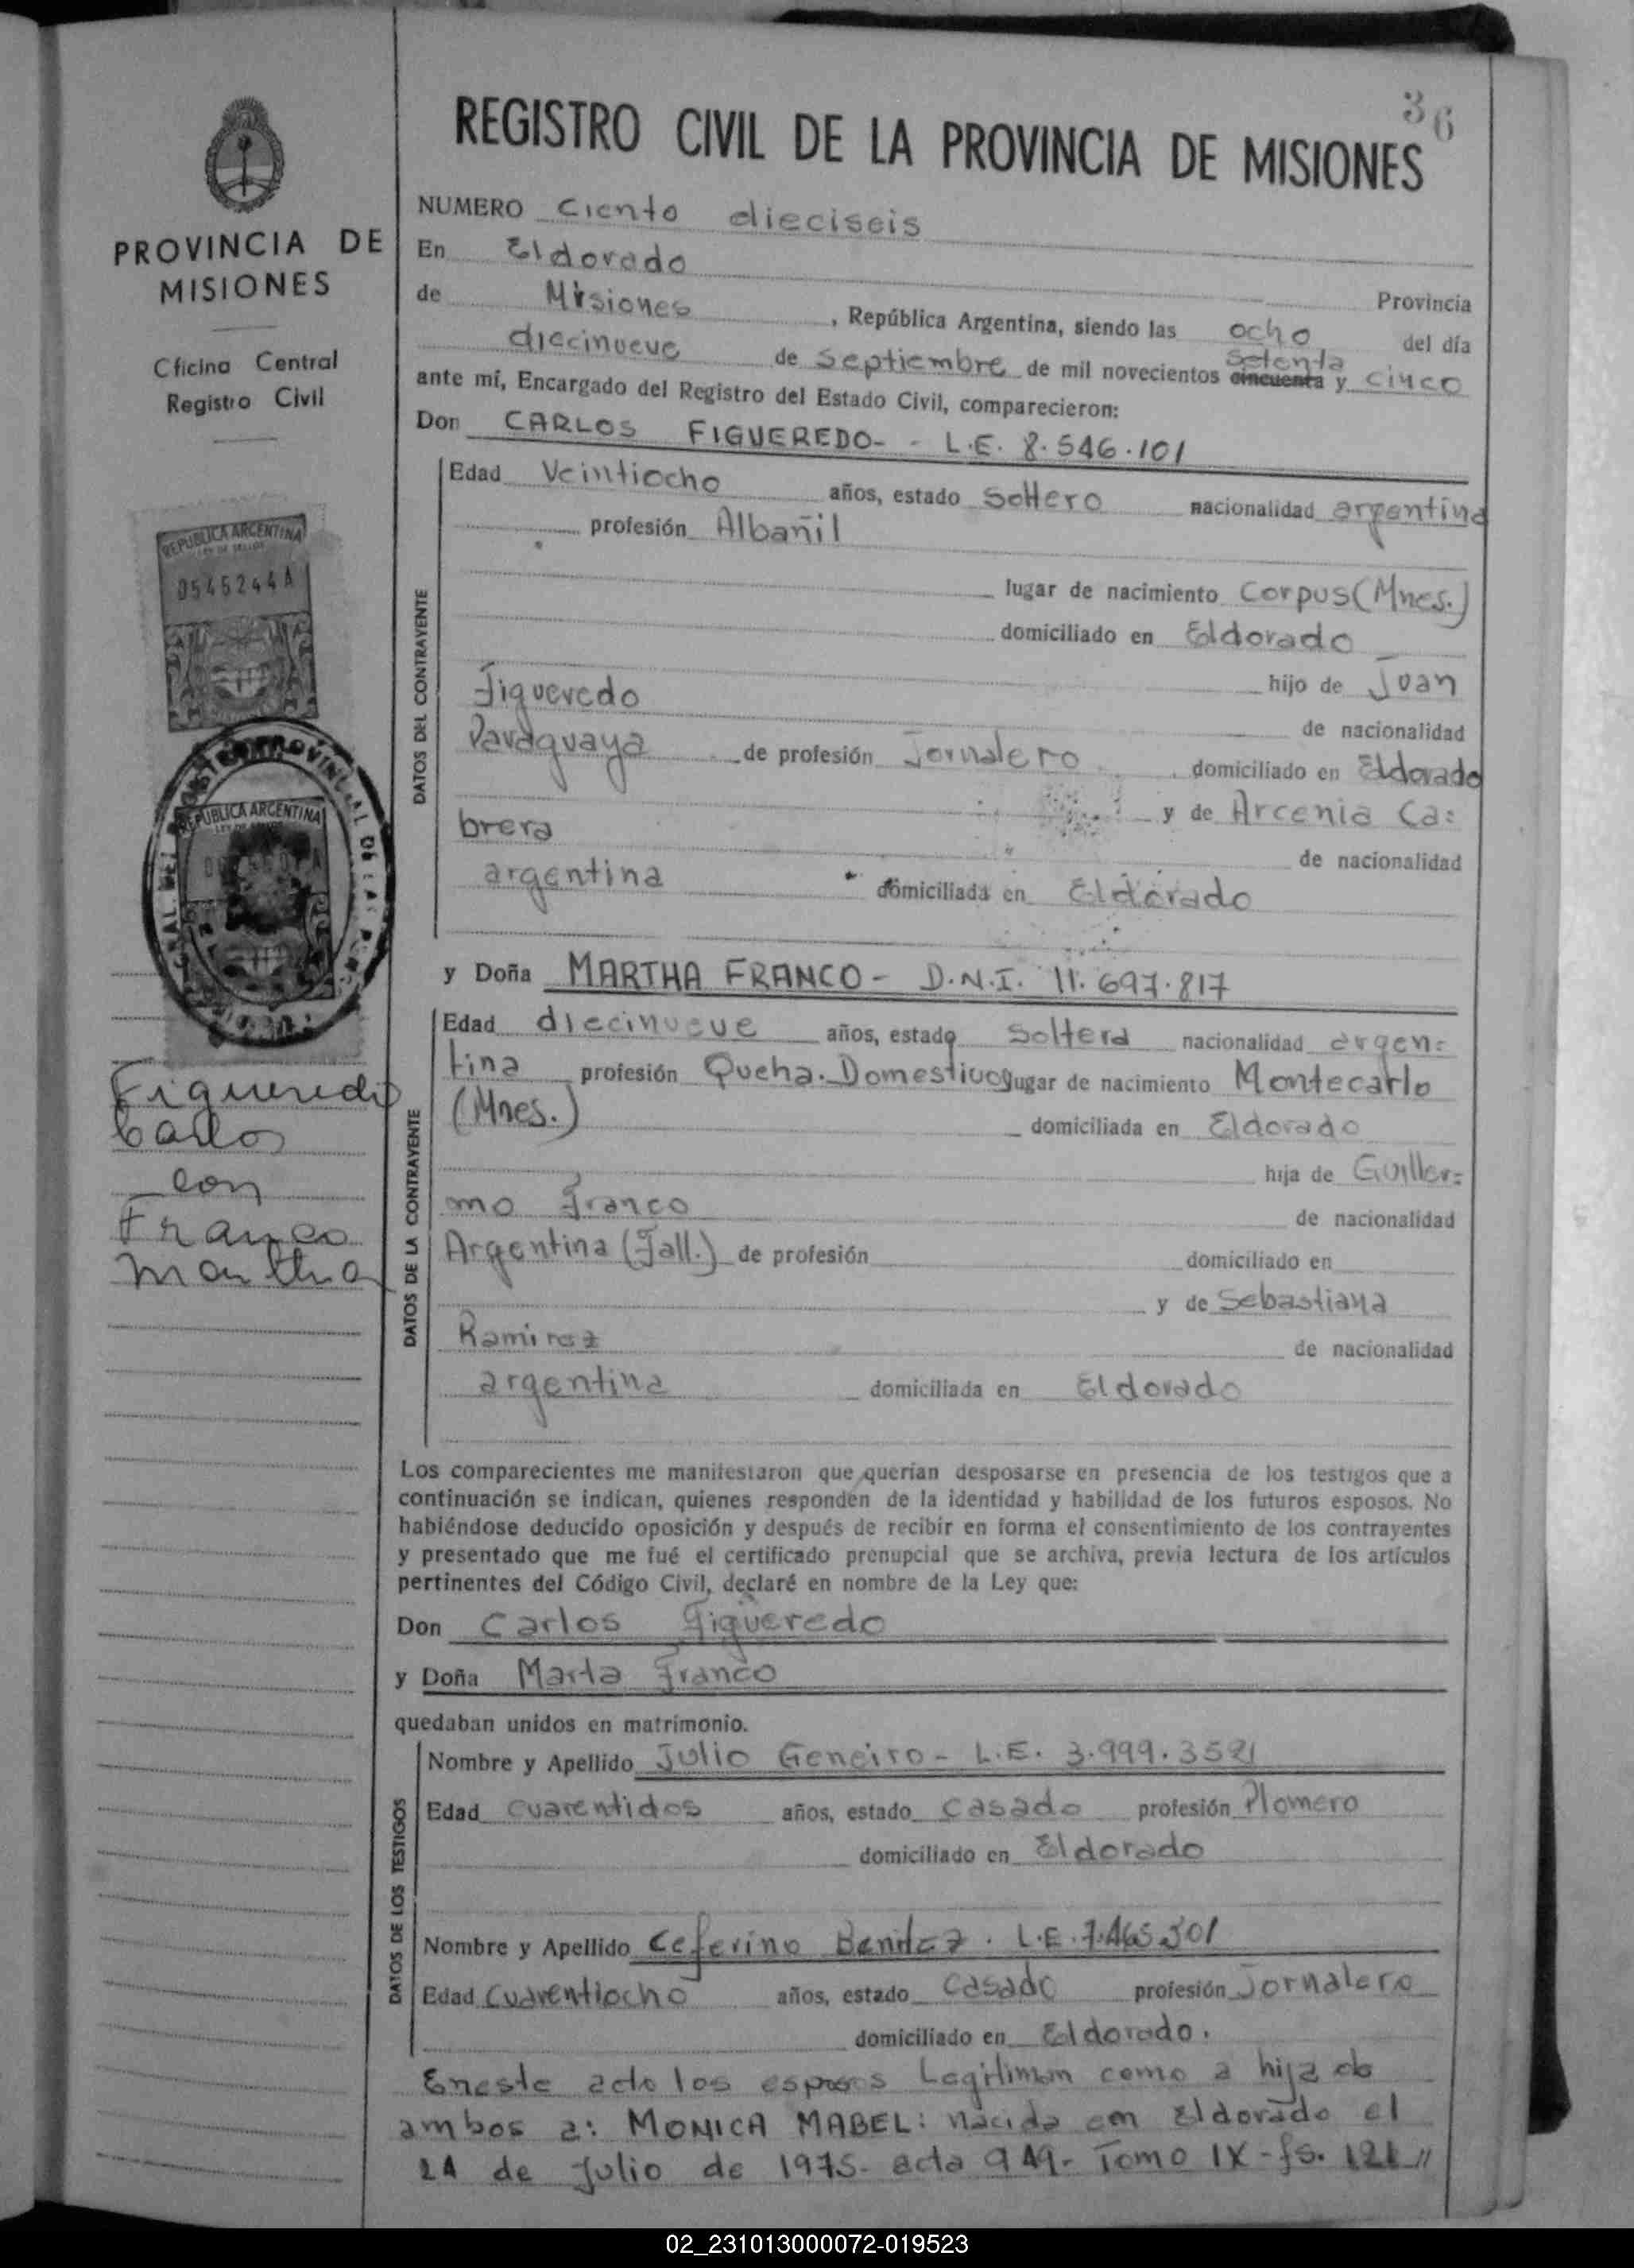 36
REGISTRO CIVIL DE LA PROVINCIA DE MISIONES
PROVINCIA DE
MISIONES
Oficina Central
Registro Civil
REPUBLICA ARGENTINA
LEY DE SELLOS
0546244A
REPUBLICA ARGENTINA
Figueredo
Carlos
con
Franco
Martha
NUMERO Ciento dieciseis
En Eldorado
Provincia
de Misiones, República Argentina, siendo las ocho del día
diecinueve de Septiembre de mil novecientos cincuenta setenta y cinco
ante mí, Encargado del Registro del Estado Civil, comparecieron:
Don CARLOS FIGUEREDO- - L.E. 8.546.101
DATOS DEL CONTRAYENTE
Edad Veintiocho años, estado Soltero nacionalidad argentina
profesión Albañil
lugar de nacimiento Corpus (Mnes.)
domiciliado en Eldorado
hijo de Juan
Figueredo
de nacionalidad
Paraguaya de profesión Jornalero domiciliado en Eldorado
y de Arcenia Ca=
brera
de nacionalidad
argentina domiciliada en Eldorado
y Doña MARTHA FRANCO- D.N.I. 11.697.817
DATOS DE LA CONTRAYENTE
Edad diecinueve años, estado Soltera nacionalidad argen=
tina profesión Queha. Domesticos lugar de nacimiento Montecarlo
(Mnes.) domiciliada en Eldorado
hija de Guiller=
mo Franco de nacionalidad
Argentina (Fall.) de profesión domiciliado en
y de Sebastiana
Ramirez de nacionalidad
argentina domiciliada en Eldorado
Los comparecientes me manifestaron que querían desposarse en presencia de los testigos que a
continuación se indican, quienes responden de la identidad y habilidad de los futuros esposos. No
habiéndose deducido oposición y después de recibir en forma el consentimiento de los contrayentes
y presentado que me fué el certificado prenupcial que se archiva, previa lectura de los artículos
pertinentes del Código Civil, declaré en nombre de la Ley que:
Don Carlos Figueredo
y Doña Marta Franco
quedaban unidos en matrimonio.
DATOS DE LOS TESTIGOS
Nombre y Apellido Julio Geneiro- L.E. 3.999.3521
Edad cuarentidos años, estado casado profesión Plomero
domiciliado en Eldorado
Nombre y Apellido Ceferino Benitez. L.E. 7.465.301
Edad Cuarentiocho años, estado Casado profesión Jornalero
domiciliado en Eldorado.
En este acto los esposos Legitiman como a hija de
ambos a: MONICA MABEL: nacida en Eldorado el
24 de Julio de 1975- acta 949- Tomo IX- fs. 121 "
02_231013000072-019523